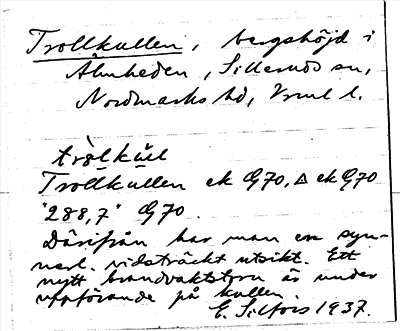 Trollkullen, bergshöjd i
Älmheden, Silleruds sn,
Nordmarks hd, Vrml l.
tròlkùl
Trollkullen ek G70, Δ ek G70
"288,7" G70.
Därifrån har man en syn-
nerl. vidsträckt utsikt. Ett
nytt brandvaktstorn är under
uppförande på kullen.
E. Silfors 1937.